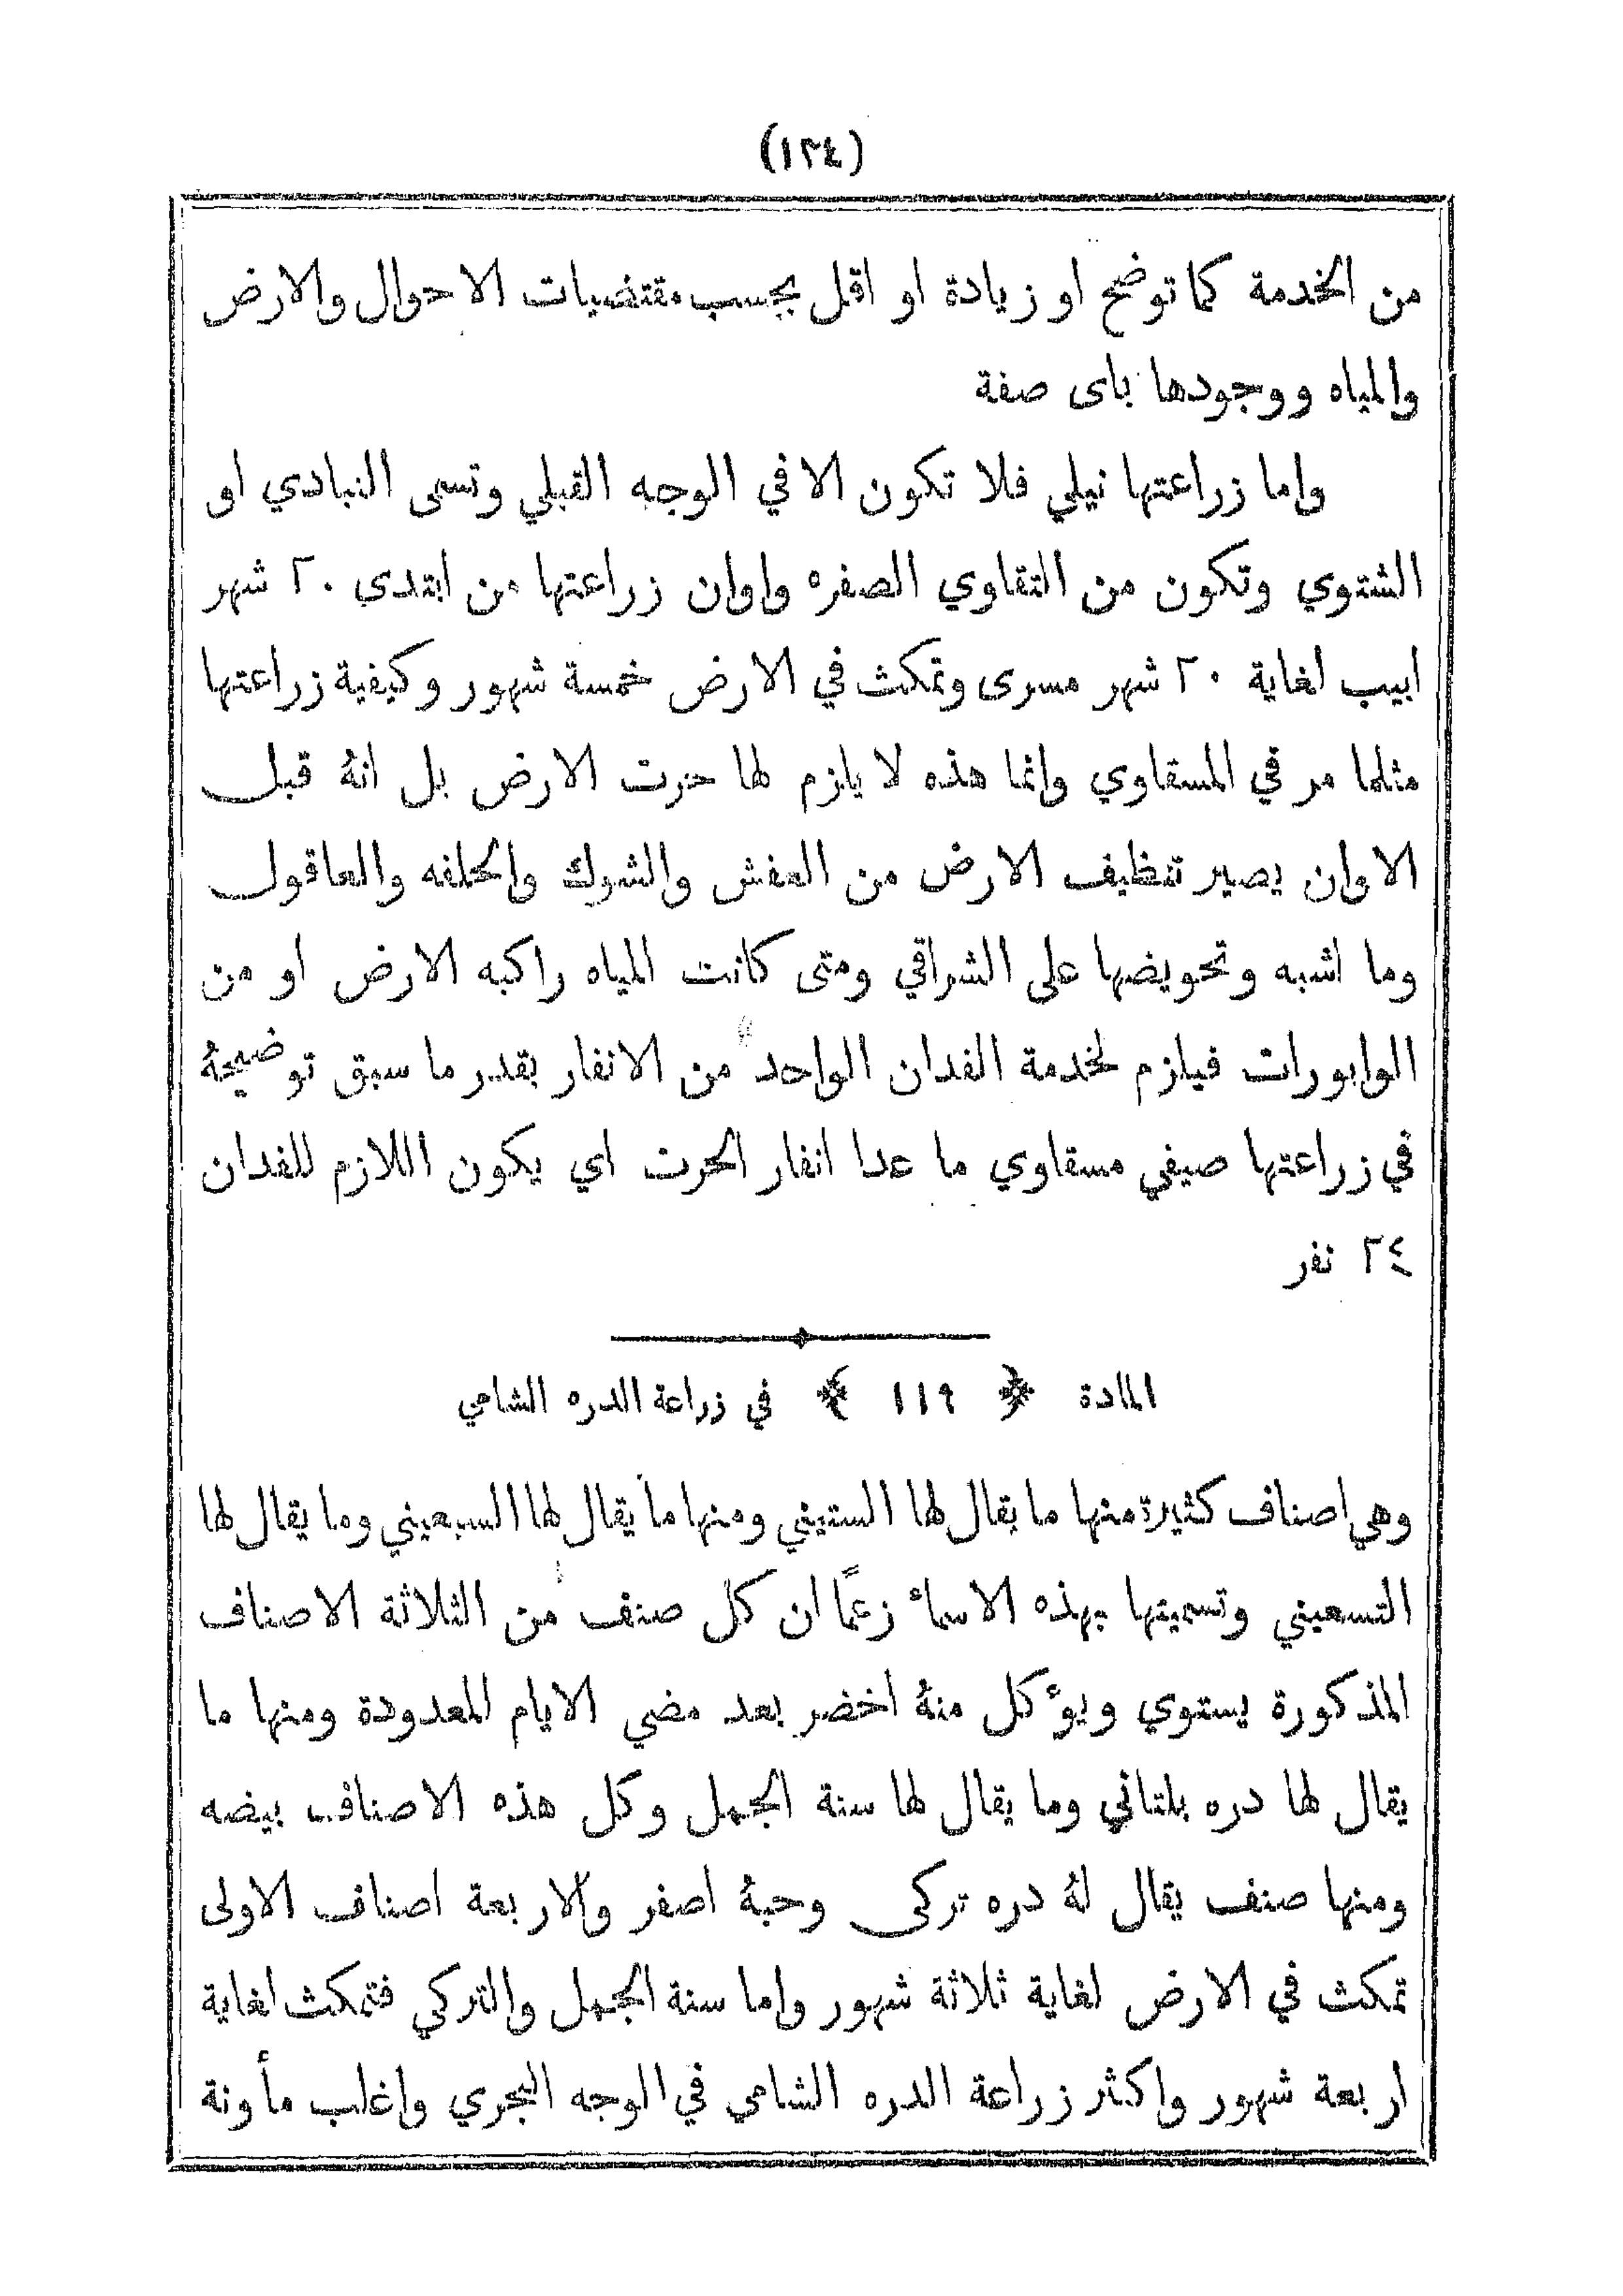 (١٢٤)
من الخدمة كما توضح او زيادة او اقل بحسب مقتضيات الاحوال والارض
والمياه ووجودها باى صفة
واما زراعتها نيلي فلا تكون الا في الوجه القبلي وتسمى النبادي او
الشتوي وتكون من التقاوي الصفره واوان زراعتها من ابتدى ٢٠ شهر
ابيب لغاية ٢٠ شهر مسرى وتمكث في الارض خمسة شهور وكيفية زراعتها
مثلما مر في المسقاوي وانما هذه لا يلزم لها حرت الارض بل انهُ قبل
الاوان يصير تنظيف الارض من العفش والشوك والحلفه والعاقول
وما اشبه وتحويضها على الشراقي ومتى كانت المياه راكبه الارض او من
الوابورات فيلزم لخدمة الفدان الواحد من الانفار بقدر ما سبق توضيحهُ
في زراعتها صيفي مسقاوي ما عدا انفار الحرت اي يكون اللازم للفدان
٢٤ نفر
المادة ﴿ ١١٩ ﴾ في زراعة الدره الشامي
وهي اصناف كثيرة منها ما يقال لها الستيني ومنها ما يقال لها السبعيني وما يقال لها
التسعيني وتسميتها بهذه الاسماء زعمًا ان كل صنف من الثلاثة الاصناف
المذكورة يستوي ويؤكل منهُ اخضر بعد مضي الايام المعدودة ومنها ما
يقال لها دره بلتاني وما يقال لها سنة الجمل وكل هذه الاصناف بيضه
ومنها صنف يقال لهُ دره تركى وحبهُ اصفر والاربعة اصناف الاولى
تمكث في الارض لغاية ثلاثة شهور واما سنة الجمل والتركي فتمكث لغاية
اربعة شهور واكثر زراعة الدره الشامي في الوجه البحري واغلب مأونة